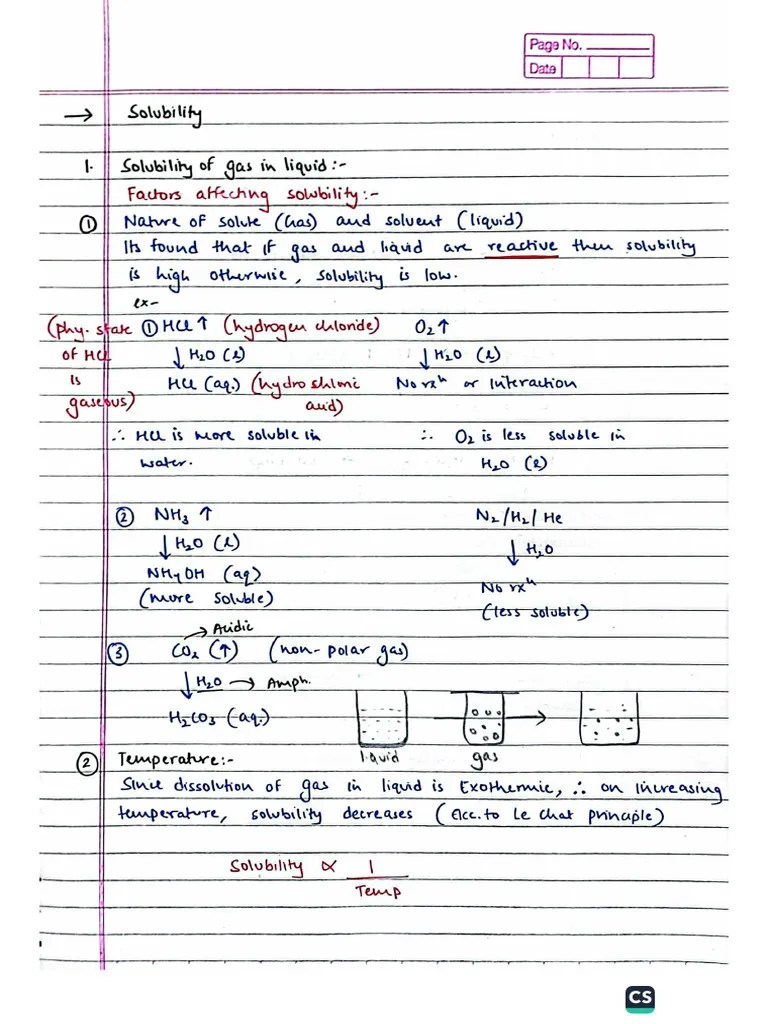 Page No.
Date
→ Solubility
1. Solubility of gas in liquid:-
Factors affecting solubility:-
① Nature of solute (Gas) and solvent (liquid)
Its found that if gas and liquid are reactive then solubility
is high otherwise, solubility is low.
ex-
(phy. state of HCl is gaseous)
① HCl ↑ (hydrogen chloride)
↓ H2O (l)
HCl (aq.) (hydrochloric acid)
∴ HCl is more soluble in
water.
O2 ↑
↓ H2O (l)
No rxn or interaction
∴ O2 is less soluble in
H2O (l)
② NH3 ↑
↓ H2O (l)
NH4OH (aq)
(more soluble)
N2/H2/He
↓ H2O
No rxn
(less soluble)
→ Acidic
③ CO2 (↑) (non-polar gas)
↓ H2O → Amph.
H2CO3 (aq.)
liquid gas
② Temperature:-
Since dissolution of gas in liquid is Exothermic, ∴ on increasing
temperature, solubility decreases (Acc. to le chat principle)
Solubility ∝ 1
Temp
CS